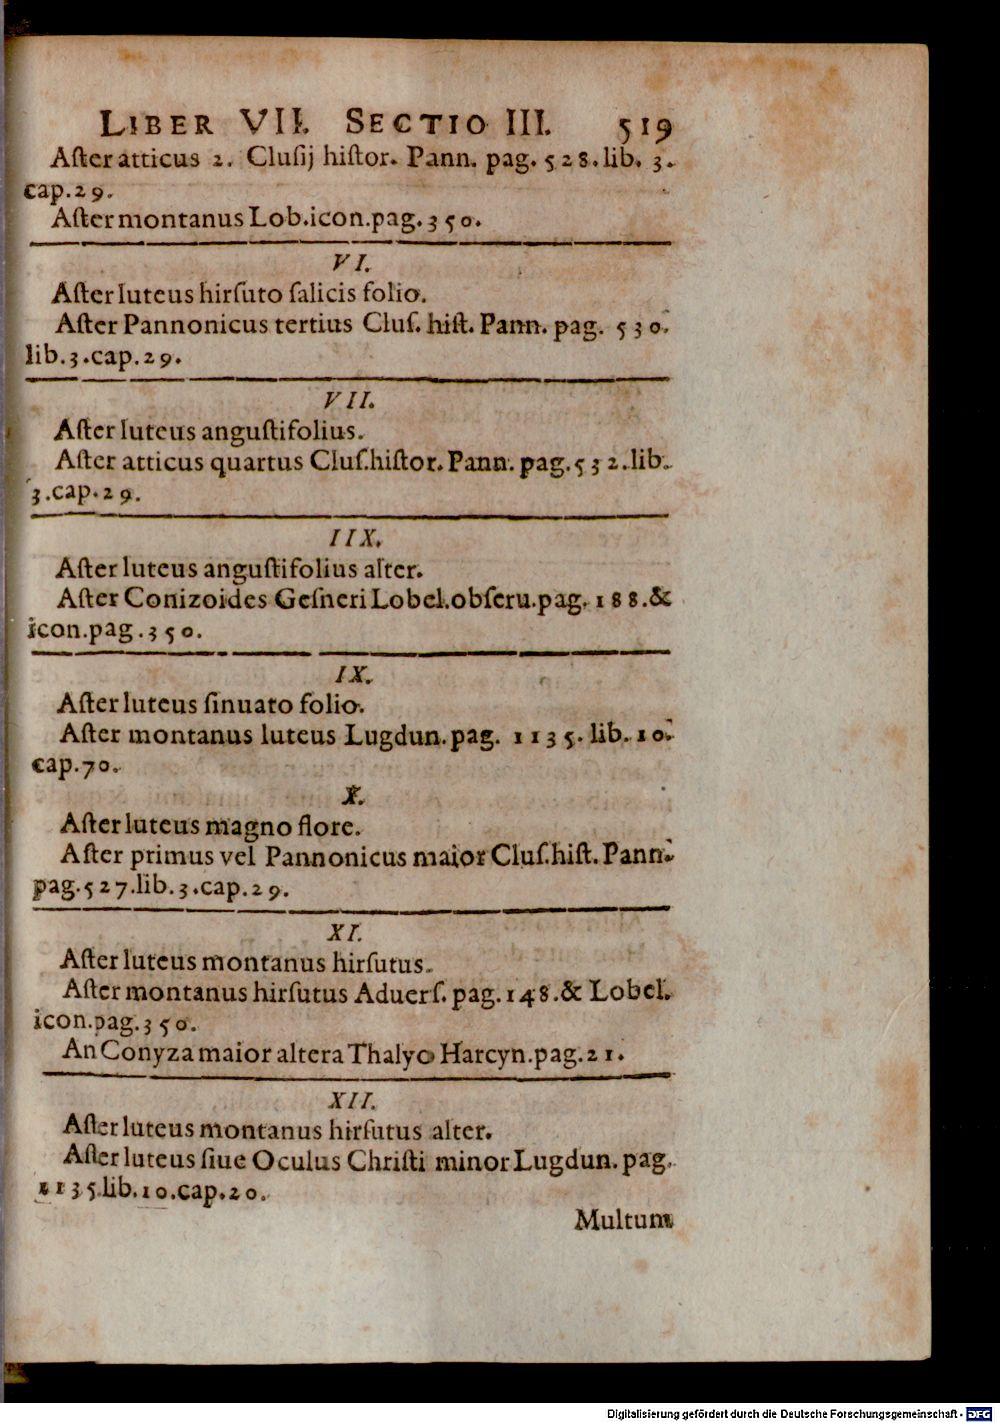 LIBER VII. SECTIO III. 519
Aſter atticus 2. Cluſij hiſtor. Pann. pag. 528. lib. 3.
cap. 29.
Aſter montanus Lob. icon. pag. 350.
VI.
Aſter luteus hirſuto ſalicis folio.
Aſter Pannonicus tertius Cluſ. hiſt. Pann. pag. 530.
lib. 3. cap. 29.
VII.
Aſter luteus anguſtifolius.
Aſter atticus quartus Cluſ. hiſtor. Pann. pag. 532. lib.
3. cap. 29.
IIX.
Aſter luteus anguſtifolius alter.
Aſter Conizoides Geſneri Lobel. obſeru. pag. 188. &
icon. pag. 350.
IX.
Aſter luteus ſinuato folio.
Aſter montanus luteus Lugdun. pag. 1135. lib. 10.
cap. 70.
X.
Aſter luteus magno flore.
Aſter primus vel Pannonicus maior Cluſ. hiſt. Pann.
pag. 527. lib. 3. cap. 29.
XI.
Aſter luteus montanus hirſutus.
Aſter montanus hirſutus Aduerſ. pag. 148. & Lobel.
icon. pag. 350.
An Conyza maior altera Thalyo Harcyn. pag. 21.
XII.
Aſter luteus montanus hirſutus alter.
Aſter luteus ſiue Oculus Chriſti minor Lugdun. pag.
1135. lib. 10. cap. 20.
Multum
Digitalisierung gefördert durch die Deutsche Forschungsgemeinschaft - DFG